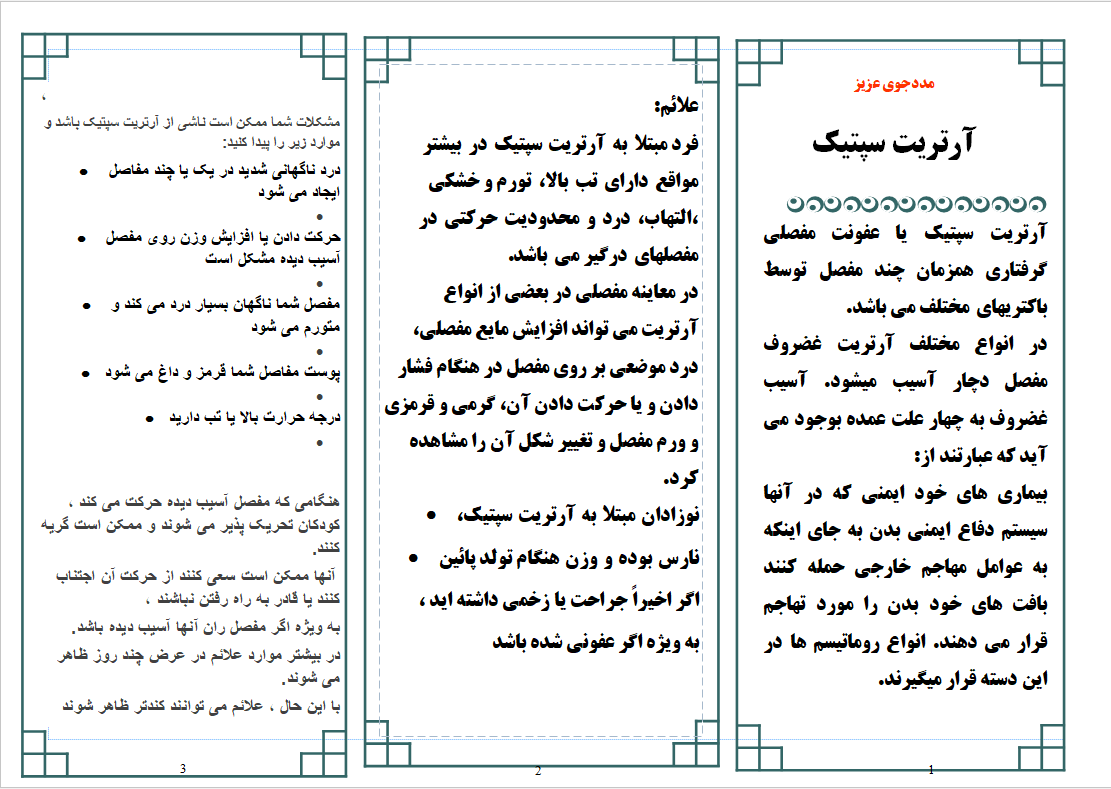 مددجوی عزیز
آرتریت سپتیک
آرتریت سپتیک یا عفونت مفصلی
گرفتاری همزمان چند مفصل توسط
باکتریهای مختلف می باشد.
در انواع مختلف آرتریت غضروف
مفصل دچار آسیب میشود. آسیب
غضروف به چهار علت عمده بوجود می
آید که عبارتند از:
بیماری های خود ایمنی که در آنها
سیستم دفاع ایمنی بدن به جای اینکه
به عوامل مهاجم خارجی حمله کنند
بافت های خود بدن را مورد تهاجم
قرار می دهند. انواع روماتیسم ها در
این دسته قرار میگیرند.
1
علائم:
فرد مبتلا به آرتریت سپتیک در بیشتر
مواقع دارای تب بالا، تورم و خشکی
،التهاب، درد و محدودیت حرکتی در
مفصلهای درگیر می باشد.
در معاینه مفصلی در بعضی از انواع
آرتریت می تواند افزایش مایع مفصلی،
درد موضعی بر روی مفصل در هنگام فشار
دادن و یا حرکت دادن آن، گرمی و قرمزی
و ورم مفصل و تغییر شکل آن را مشاهده
کرد.
نوزادان مبتلا به آرتریت سپتیک، •
نارس بوده و وزن هنگام تولد پائین •
اگر اخیراً جراحت یا زخمی داشته اید ،
به ویژه اگر عفونی شده باشد
2
،
مشکلات شما ممکن است ناشی از آرتریت سپتیک باشد و
موارد زیر را پیدا کنید:
درد ناگهانی شدید در یک یا چند مفاصل •
ایجاد می شود
•
حرکت دادن یا افزایش وزن روی مفصل •
آسیب دیده مشکل است
•
مفصل شما ناگهان بسیار درد می کند و •
متورم می شود
•
پوست مفاصل شما قرمز و داغ می شود •
•
درجه حرارت بالا یا تب دارید •
•
هنگامی که مفصل آسیب دیده حرکت می کند ،
کودکان تحریک پذیر می شوند و ممکن است گریه
کنند.
آنها ممکن است سعی کنند از حرکت آن اجتناب
کنند یا قادر به راه رفتن نباشند ،
به ویژه اگر مفصل ران آنها آسیب دیده باشد.
در بیشتر موارد علائم در عرض چند روز ظاهر
می شوند.
با این حال ، علائم می توانند کندتر ظاهر شوند
3